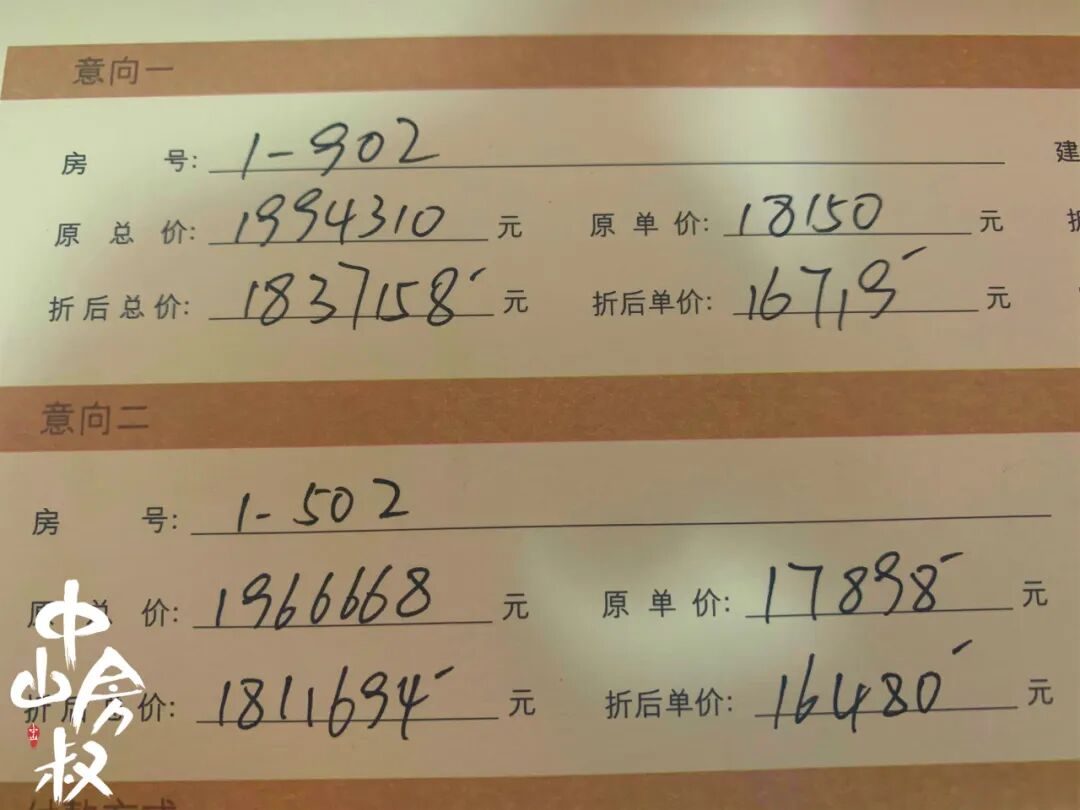 意向一
房号: 1-902
建
原总价: 1994310 元 原单价: 18150 元
折后总价: 1837158 元 折后单价: 16719 元
意向二
房号: 1-502
原总价: 1966668 元 原单价: 17898 元
折后总价: 1811694 元 折后单价: 16480 元
付款方式
中山房叔